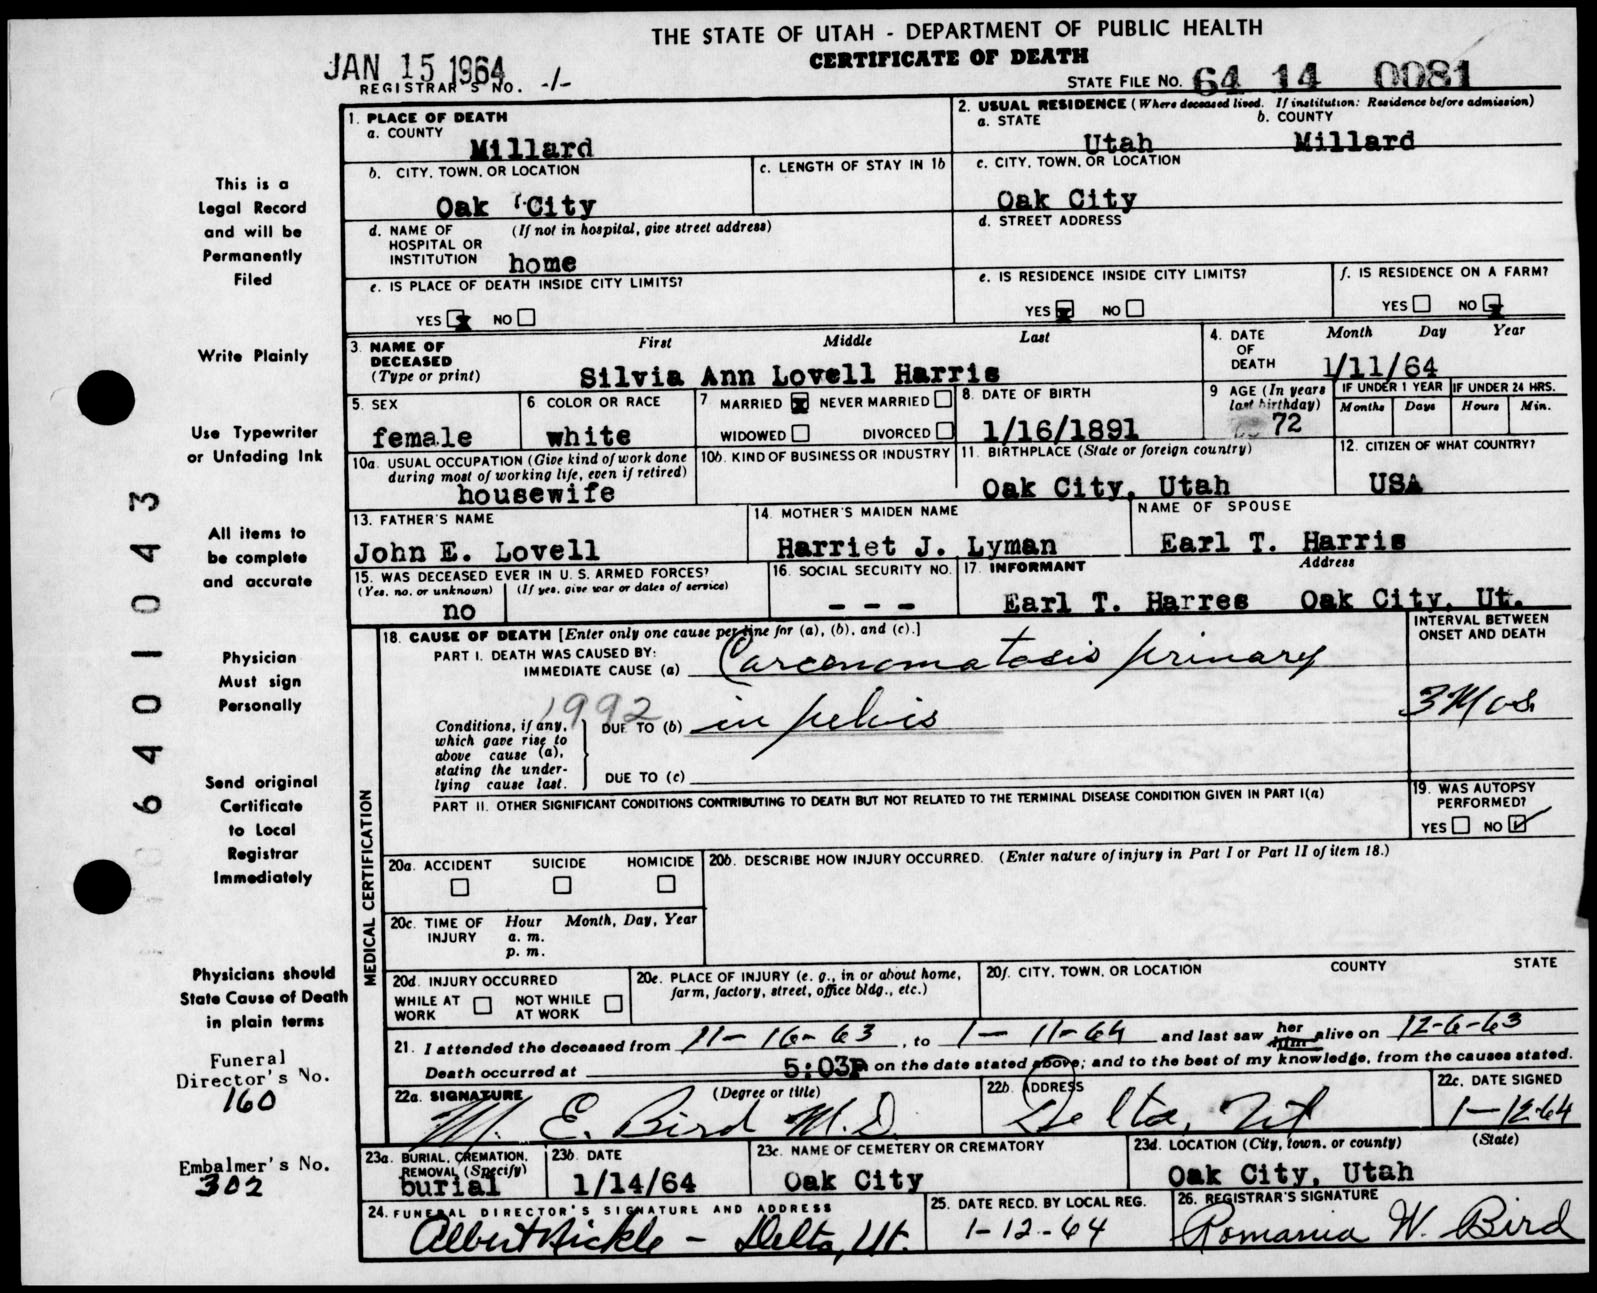 THE STATE OF UTAH - DEPARTMENT OF PUBLIC HEALTH
CERTIFICATE OF DEATH
JAN 15 1964
REGISTRAR'S NO. -1-
STATE FILE NO. 64 14 0081
This is a
Legal Record
and will be
Permanently
Filed
Write Plainly
Use Typewriter
or Unfading Ink
All items to
be complete
and accurate
Physician
Must sign
Personally
Send original
Certificate
to Local
Registrar
Immediately
Physicians should
State Cause of Death
in plain terms
Funeral
Director's No.
160
Embalmer's No.
302
6401043
1. PLACE OF DEATH
a. COUNTY
Millard
2. USUAL RESIDENCE (Where deceased lived. If institution: Residence before admission)
a. STATE b. COUNTY
Utah Millard
b. CITY, TOWN, OR LOCATION
Oak City
c. LENGTH OF STAY IN 1b
c. CITY, TOWN, OR LOCATION
Oak City
d. NAME OF (If not in hospital, give street address)
HOSPITAL OR
INSTITUTION home
d. STREET ADDRESS
e. IS PLACE OF DEATH INSIDE CITY LIMITS?
YES x NO
e. IS RESIDENCE INSIDE CITY LIMITS?
YES x NO
f. IS RESIDENCE ON A FARM?
YES NO x
3. NAME OF First Middle Last
DECEASED
(Type or print) Silvia Ann Lovell Harris
4. DATE Month Day Year
OF
DEATH 1/11/64
5. SEX
female
6 COLOR OR RACE
white
7 MARRIED x NEVER MARRIED
WIDOWED DIVORCED
8. DATE OF BIRTH
1/16/1891
9 AGE (In years
last birthday)
72
IF UNDER 1 YEAR IF UNDER 24 HRS.
Months Days Hours Min.
10a. USUAL OCCUPATION (Give kind of work done
during most of working life, even if retired)
housewife
10b. KIND OF BUSINESS OR INDUSTRY
11. BIRTHPLACE (State or foreign country)
Oak City, Utah
12. CITIZEN OF WHAT COUNTRY?
USA
13. FATHER'S NAME
John E. Lovell
14. MOTHER'S MAIDEN NAME
Harriet J. Lyman
NAME OF SPOUSE
Earl T. Harris
15. WAS DECEASED EVER IN U. S. ARMED FORCES?
(Yes, no, or unknown) (If yes, give war or dates of service)
no
16. SOCIAL SECURITY NO.
- - -
17. INFORMANT Address
Earl T. Harres Oak City, Ut.
MEDICAL CERTIFICATION
18. CAUSE OF DEATH [Enter only one cause per line for (a), (b), and (c).]
INTERVAL BETWEEN
ONSET AND DEATH
PART I. DEATH WAS CAUSED BY:
IMMEDIATE CAUSE (a) Carcenomatosis primary
1992
Conditions, if any, DUE TO (b) in pelvis
3 Mos.
which gave rise to
above cause (a),
stating the under-
lying cause last.
DUE TO (c)
PART II. OTHER SIGNIFICANT CONDITIONS CONTRIBUTING TO DEATH BUT NOT RELATED TO THE TERMINAL DISEASE CONDITION GIVEN IN PART I(a)
19. WAS AUTOPSY
PERFORMED?
YES NO ✓
20a. ACCIDENT SUICIDE HOMICIDE
20b. DESCRIBE HOW INJURY OCCURRED. (Enter nature of injury in Part I or Part II of item 18.)
20c. TIME OF Hour Month, Day, Year
INJURY a. m.
p. m.
20d. INJURY OCCURRED
WHILE AT NOT WHILE
WORK AT WORK
20e. PLACE OF INJURY (e. g., in or about home,
farm, factory, street, office bldg., etc.)
20f. CITY, TOWN, OR LOCATION COUNTY STATE
21. I attended the deceased from 11-16-63, to 1-11-64 and last saw her him alive on 12-6-63
Death occurred at 5:03p on the date stated above; and to the best of my knowledge, from the causes stated.
22a. SIGNATURE (Degree or title)
M. E. Bird M.D.
22b. ADDRESS
Delta, Ut
22c. DATE SIGNED
1-12-64
23a. BURIAL, CREMATION,
REMOVAL (Specify)
burial
23b DATE
1/14/64
23c. NAME OF CEMETERY OR CREMATORY
Oak City
23d. LOCATION (City, town, or county) (State)
Oak City, Utah
24. FUNERAL DIRECTOR'S SIGNATURE AND ADDRESS
Albert Nickle - Delta, Ut.
25. DATE RECD. BY LOCAL REG.
1-12-64
26. REGISTRAR'S SIGNATURE
Romania W. Bird